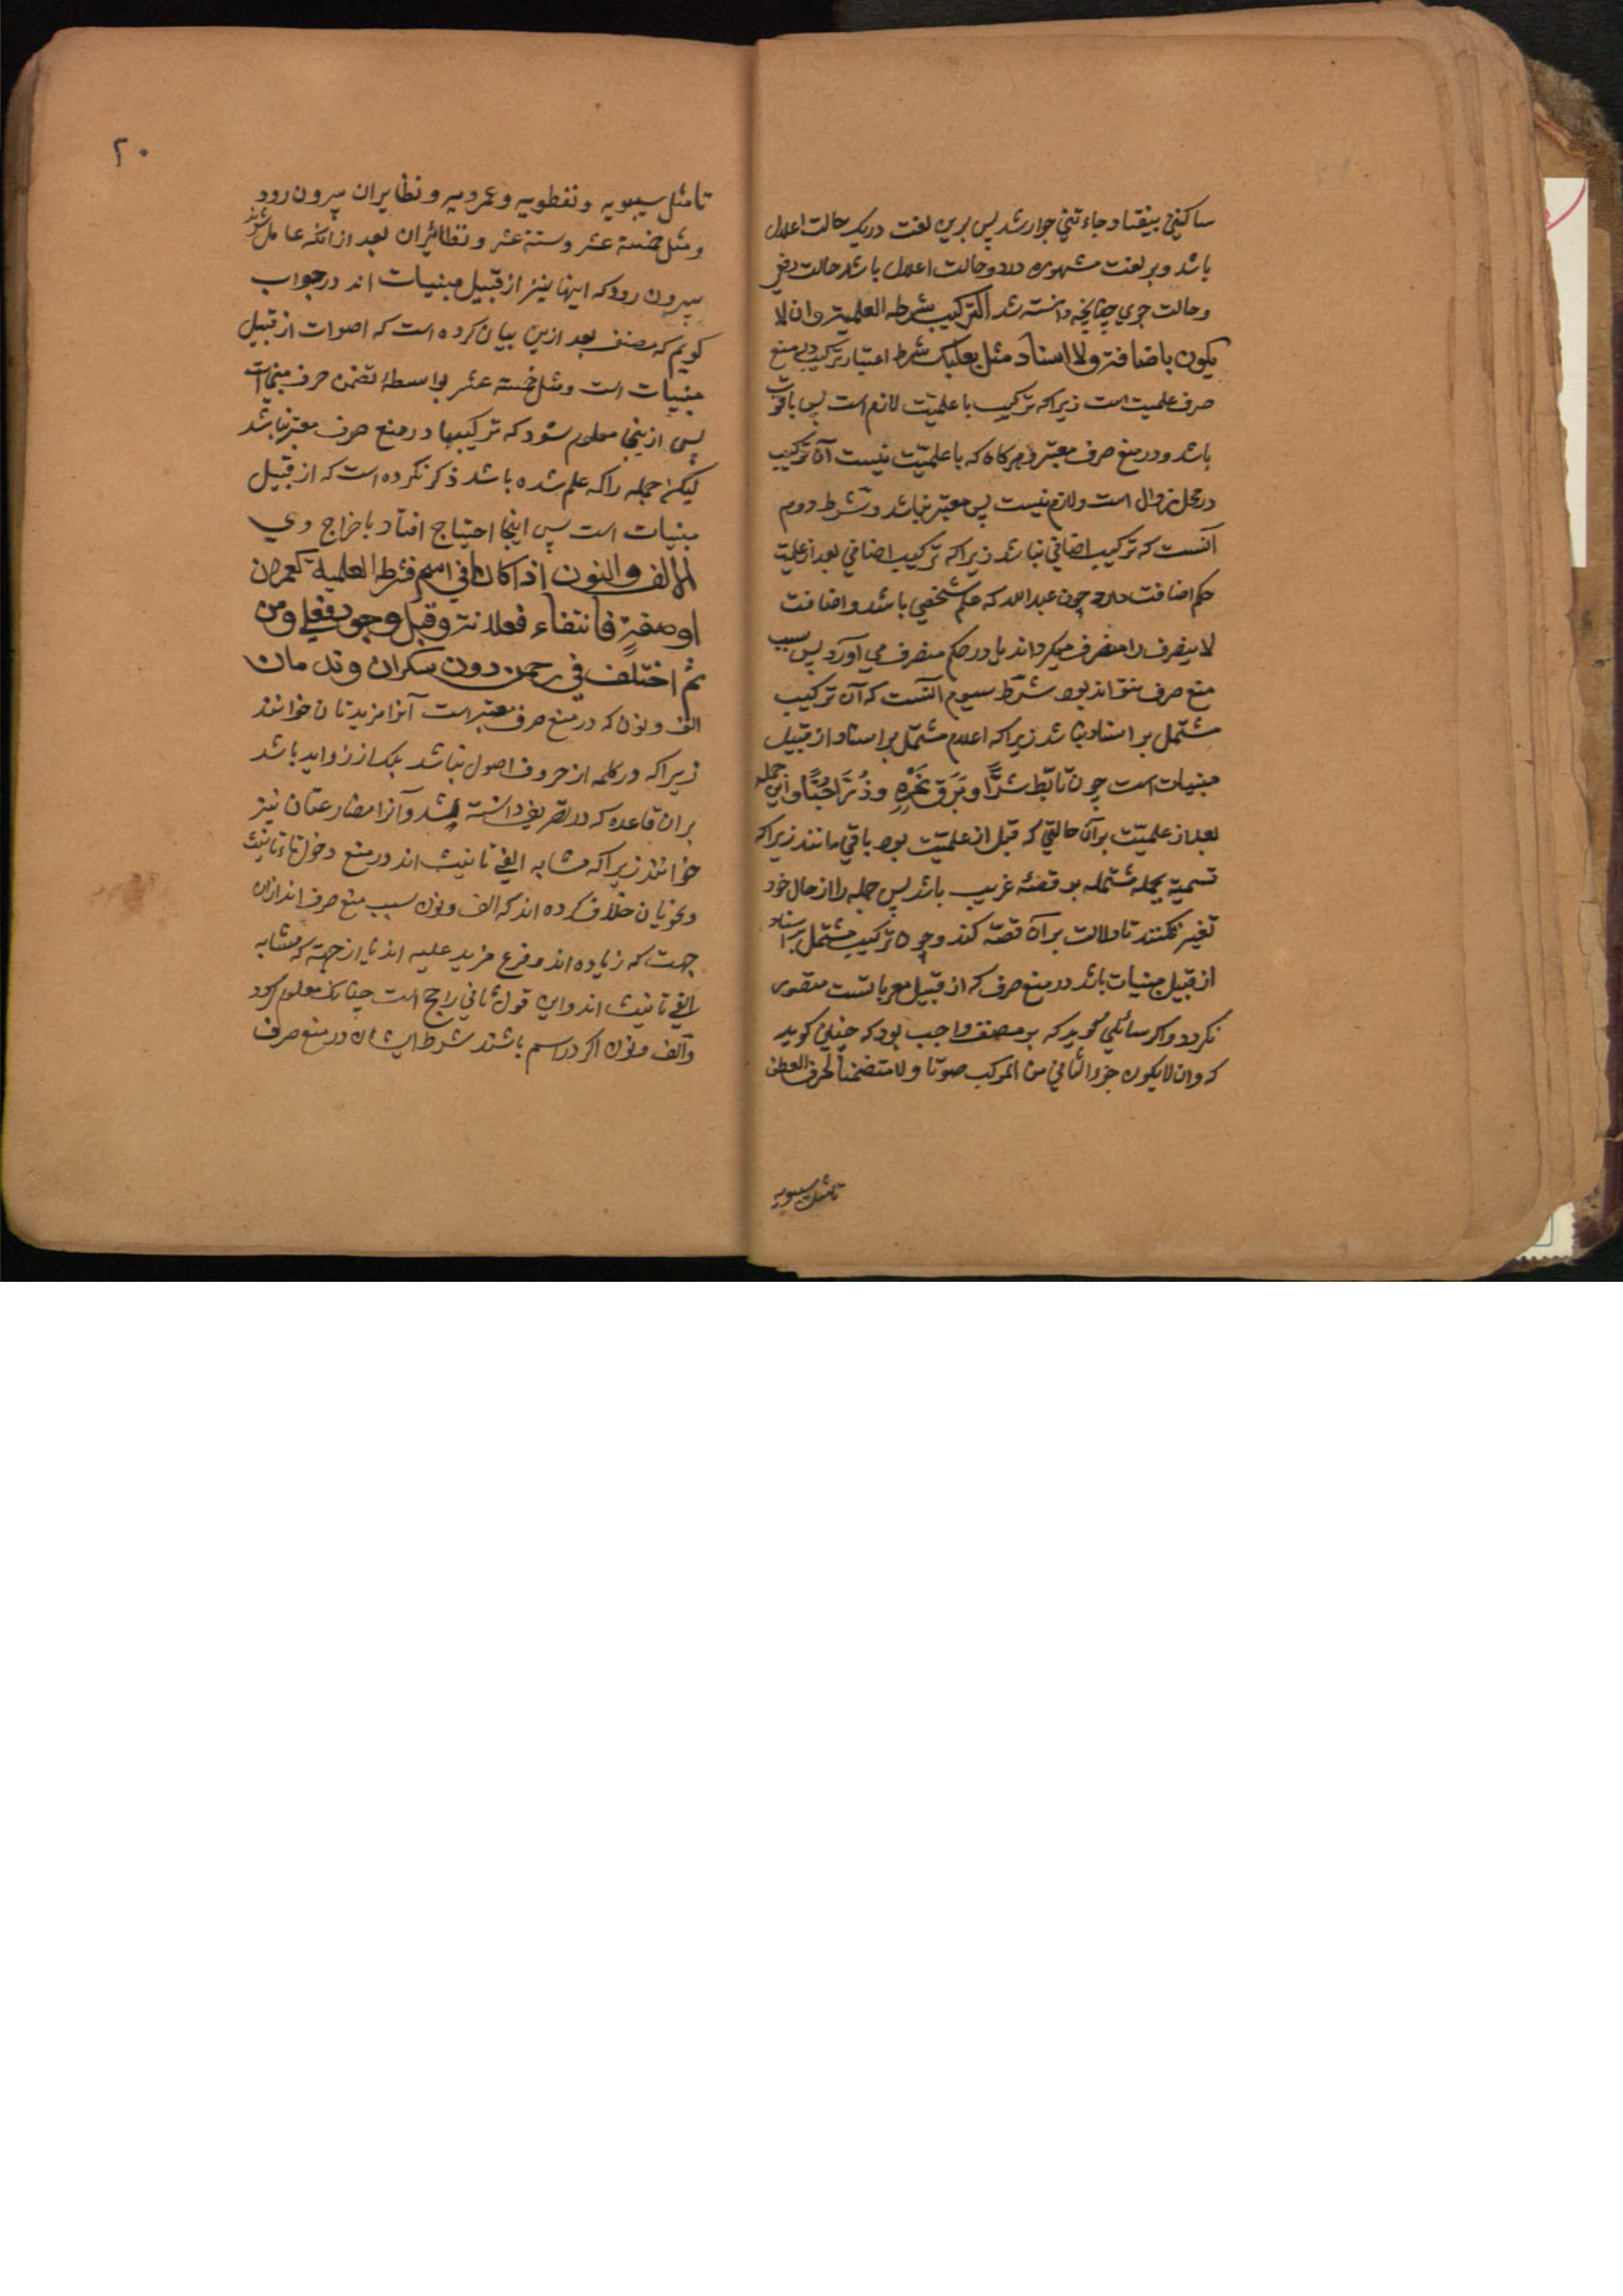 ساکنین بیفتاد جاءتنی جوار شد پس برین لغت در یک حالت اعلال
باشد و بر لغت مشهوره در دو حالت اعلال باشد حالت رفع
و حالت جری چنانچه دانسته شد الترکیب شرطه العلمیة وان لا
یکون باضافة ولا اسناد مثل بعلبک شرط اعتبار ترکیب در منع
صرف علمیت است زیراکه ترکیب با علمیّت لازم است پس با قوت
باشد و در منع صرف معتبر و هرکاه که با علمیّت نیست آن ترکیب
در محل زوال است و لازم نیست پس معتبر نباشد و شرط دوم
آنست که ترکیب اضافی نباشد زیراکه ترکیب اضافی بعد از علمیّت
حکم اضافت دارد چون عبدالله که علم شخصی باشد و اضافت
لا ینصرف را منصرف میکرداند یا در حکم منصرف می آورد پس سبب
منع صرف نتواند بود شرط سیوم آنست که آن ترکیب
مشتمل بر اسناد نباشد زیراکه اعلام مشتمل بر اسناد از قبیل
مبنیات است چون تابّط شرًّا و بَرَق نَحْرُه و ذُرّی حُبًّا و این جمله
بعد از علمیّت بر آن حالتی که قبل از علمیّت بود باقی مانند زیراکه
تسمیة بجمله مشتمله بر قصّهٔ غریب باشد پس جمله را از حال خود
تغیر نکنند تا دلالت بر آن قصّه کند و چون ترکیب مشتمل بر اسناد
از قبیل مبنیات باشد در منع صرف که از قبیل معرباتست متصور
نکردد و اکر سائلی کوید که بر مصنف واجب بود که چنین کوید
که وان لا یکون جزء الثانی من المرکب صوتا ولا متضمنا لحرف العطف
تا مثل سیبویه
۲۰
تا مثل سیبویه و نفطویه و عمرویه و نظایر آن بیرون رود
و مثل خمسة عشر و ستة عشر و نظائر آن بعد از آنکه عامل شوند
بیرون رود که اینها نیز از قبیل مبنیات اند در جواب
کویم که مصنف بعد ازین بیان کرده است که اصوات از قبیل
مبنیات است و مثل خمسة عشر بواسطهٔ تضمن حرف مبنیات
پس ازینجا معلوم شود که ترکیبها در منع صرف معتبر نباشد
لیکن جمله را که علم شده باشد ذکر نکرده است که از قبیل
مبنیات است پس اینجا احتیاج افتاد باخراج وی
الالف والنون اذا کانا فی اسم فشرطه العلمیة کعمران
او صفةٍ فانتفاء فعلانة وقیل وجود فعلی ومن
ثم اختلف فی رحمن دون سکران وندمان
الف و نون که در منع صرف معتبر است آنرا مزیدتان خوانند
زیراکه در کلمه از حروف اصول نباشد بلکه از زواید باشد
بر آن قاعده که در تصریف دانسته شد و آنرا مضارعتان نیز
خوانند زیراکه مشابه الفی تانیث اند در منع دخول تاء تانیث
و نحویان خلاف کرده اند که الف و نون سبب منع صرف اند از آن
جهت که زیاده اند و فرع مزید علیه اند یا از جهة که مشابه
بالفی تانیث اند و این قول ثانی راجح است چنانک معلوم کردد
و الف و نون اکر در اسم باشند شرط ایشان در منع صرف